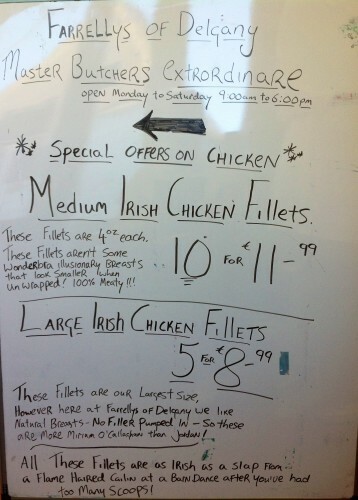 Farrellys of Delgany
Master Butchers Extrordinare
open Monday to Saturday 9.00am to 6:00pm
** Special Offers on Chicken **
Medium Irish Chicken Fillets.
These Fillets are 4oz each.
These Fillets aren't Some
Wonderbra illusionary Breasts
that look Smaller when
unwrapped! 100% Meaty!!!
10 for €11-99
Large Irish Chicken Fillets
5 for €8-99
These Fillets are our Largest Size,
However here at Farrellys of Delgany we like
Natural Breasts - No Filler Pumped In - So these
are More Miriam O'Callaghan than Jordan!
All These Fillets are as Irish as a Slap From
a Flame Haired Cailin at a Barn Dance after you've had
too Many Scoops!